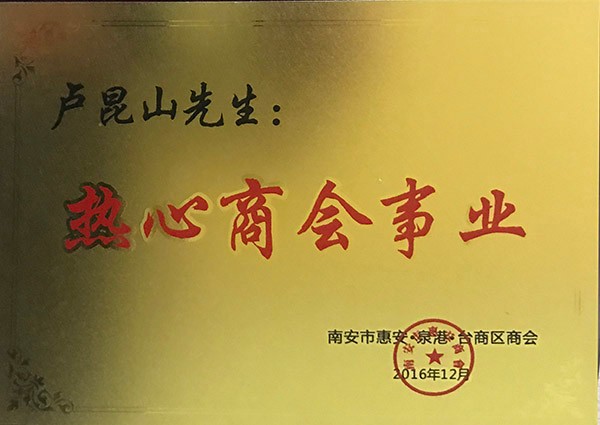 卢昆山先生：
热心商会事业
南安市惠安·泉港·台商区商会
2016年12月